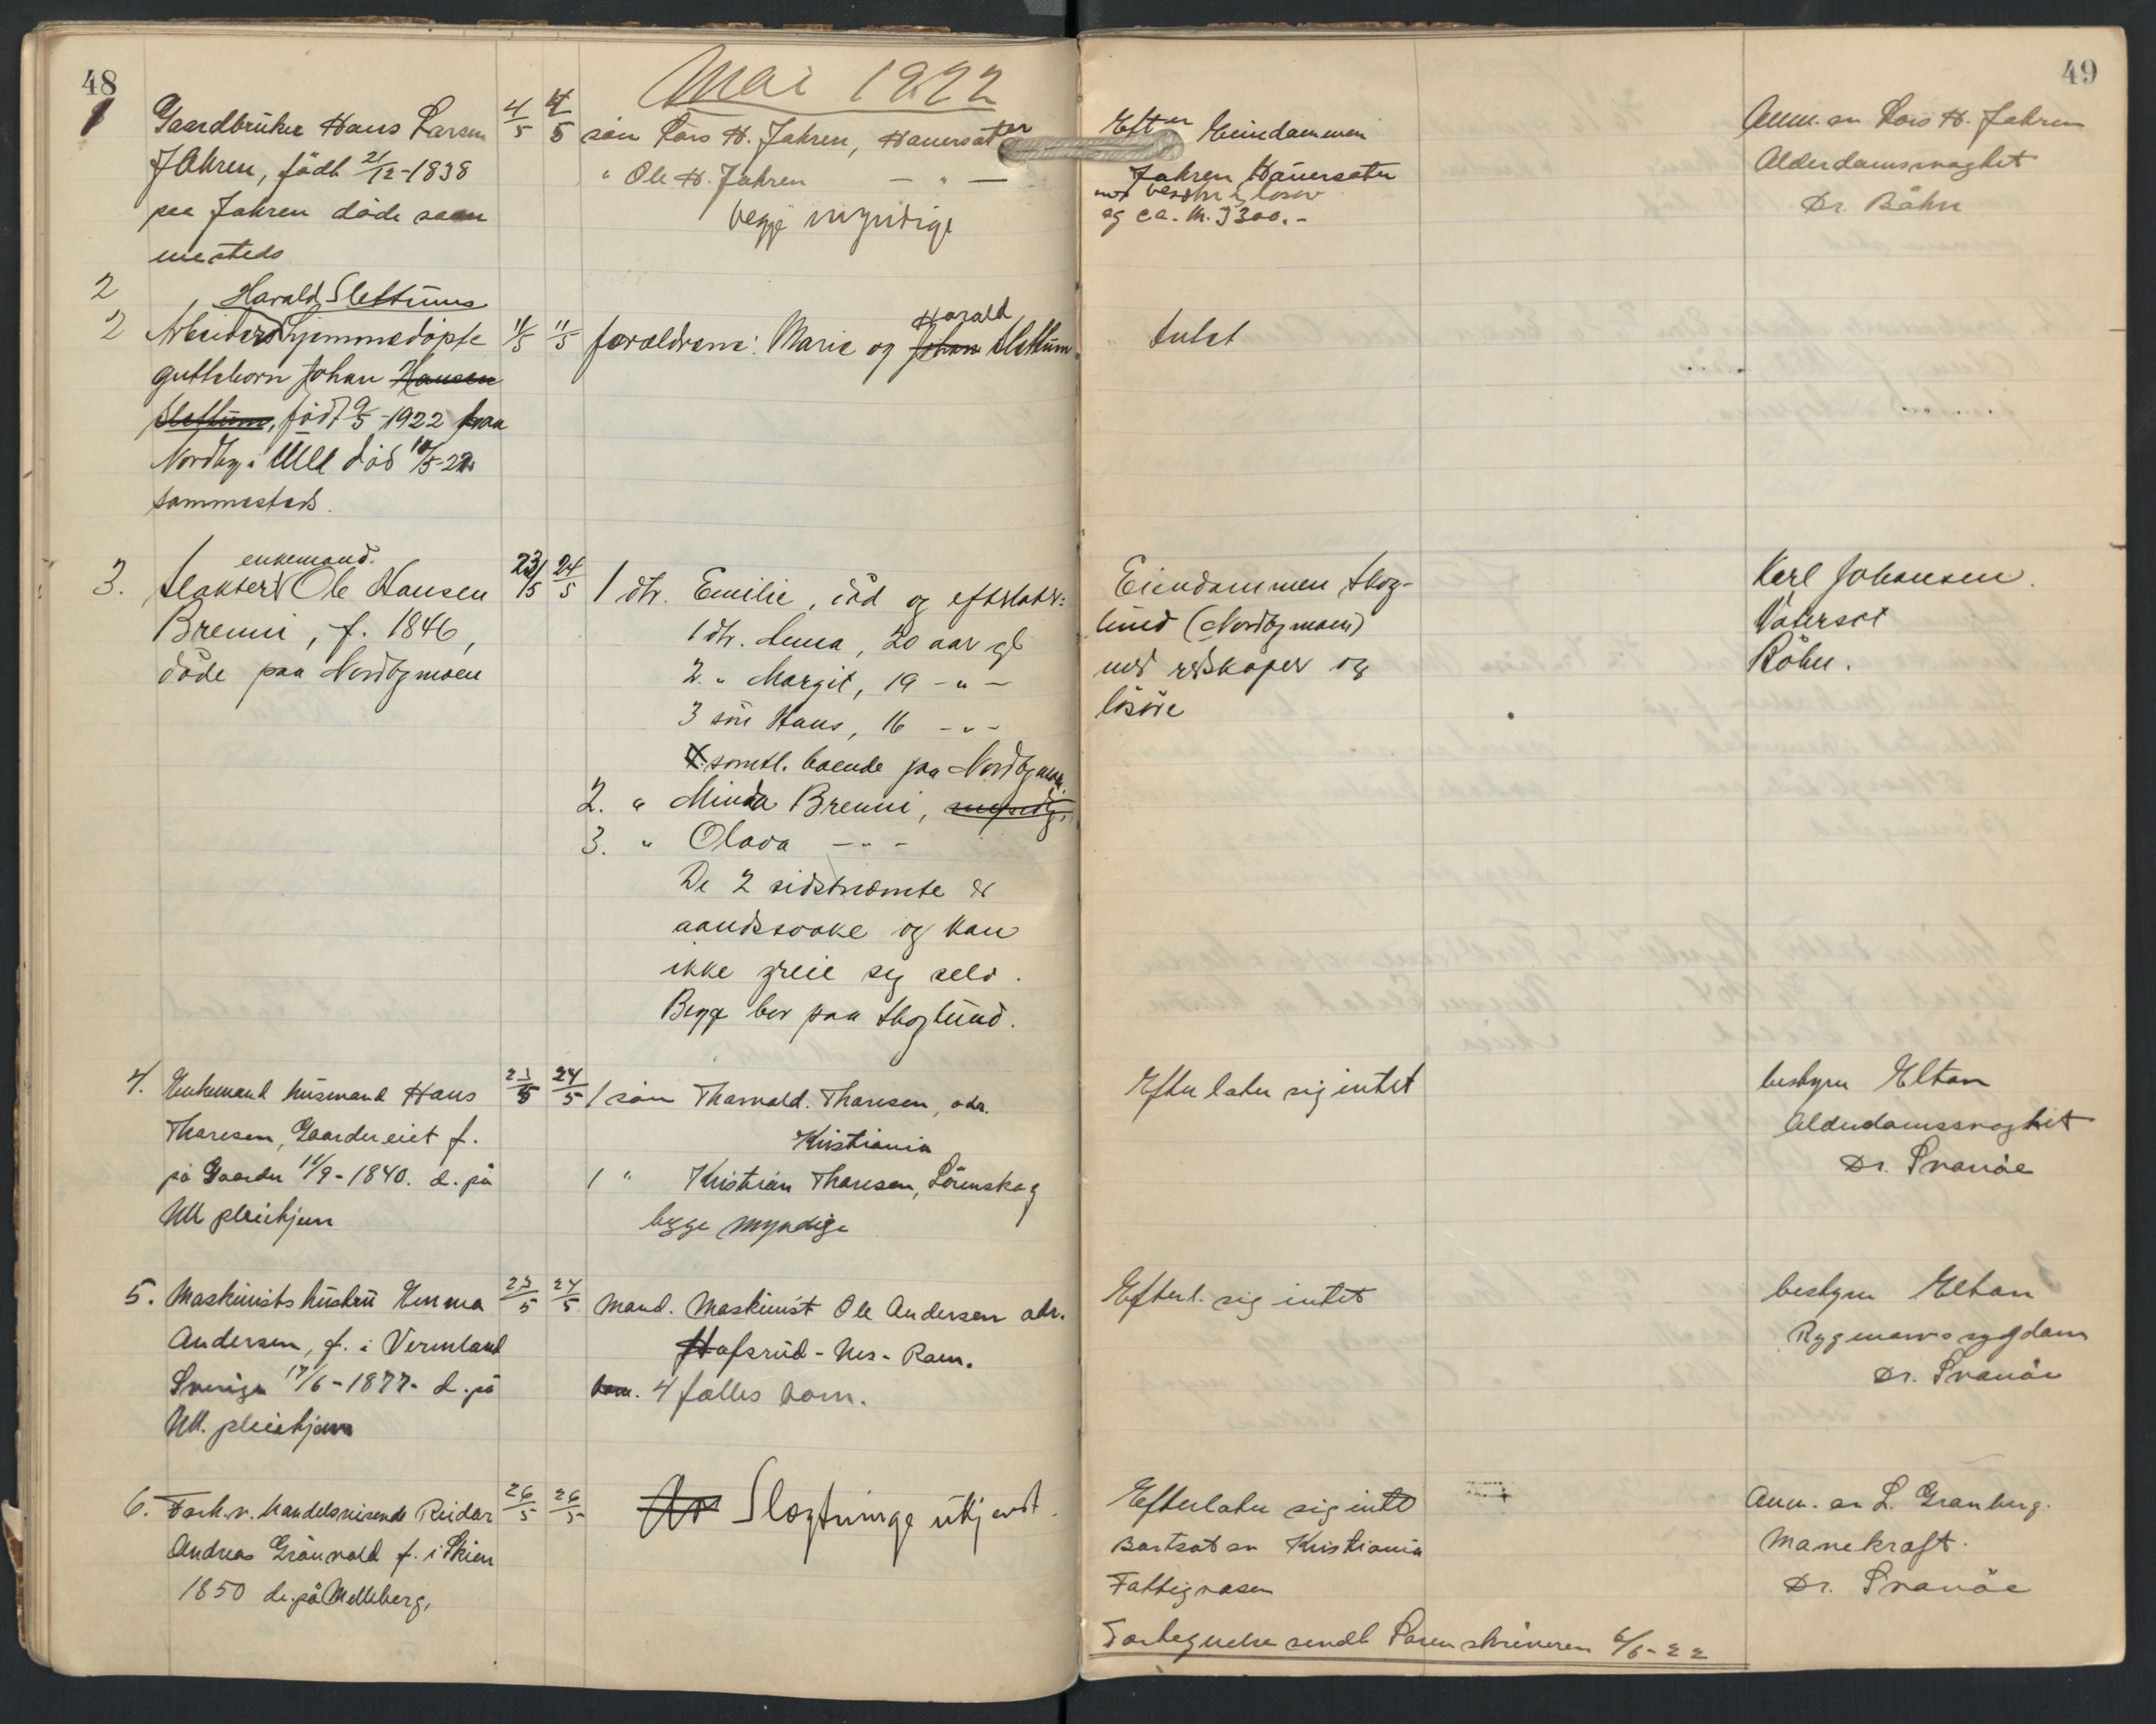 48
Mai 1922
1 Gaardbruker Hans Larsen 4/5 4/5 søn Lars H. Jahren, Hauersæter
Jahren, födt 21/12-1838 " Ole H. Jahren — " —
paa Jahren döde sam begge myndige
mesteds
2
Harald Slettums
2 Arbeiders hjemmedöpte 11/5 11/5 forældrene: Marie og Johan Harald Slettum
guttebarn Johan Hansen
Slettum, född 9/5-1922 paa
Nordby i Ull död 10/5-22
sammesteds.
enkemand.
3. Slakter Ole Hansen 23/5 24/5 1 dtr. Emilie, död og efterlater:
Brenni, f. 1846, 1 dtr. Anna, 20 aar gl
döde paa Nordbymoen 2. " Margit, 19 - " -
3 søn Hans, 16 - " -
samtl. boende paa Nordbymoen
2. " Minda Brenni, myndig,
3. " Olava - " -
De 2 sidstnævnte er
aandssvake og kan
ikke greie seg selv.
Begge bor paa Skoglund.
4. Enkemand husmand Hans 23/5 24/5 1 søn Thorvald Thoresen, adr.
Thoresen, Gaardereiet f. Kristiania
på Gaarder 11/9-1840. d. på 1 " Kristian Thoresen, Lörenskog
Ull pleiehjem begge myndige
5. Maskinists hustru Emma 23/5 24/5 Mand. Maskinist Ole Andersen adr.
Andersen, f. i Vermland Hofsrud - Nes - Rom.
Sverige 17/6-1877- d. på barn. 4 fælles barn.
Ull. pleiehjem
6. Fork.v. handelsreisende Reidar 26/5 26/5 Slægtninge ukjendt.
Andreas Grönvold f. i Skien
1850 d. på Melleberg,
49
Efter Eiendommen Anm. av Lars H. Jahren
Jahren Hauersæter Alderdomssvaghet
med besætn. og lösøre Dr. Böhn
og ca. Kr. 3300.-
Intet
Eiendommen Skog- Karl Johansen.
lund (Nordbymoen)
med redskaper og Böhn.
lösøre
Efterlater sig intet bestyrer Elton
Alderdomssvaghet
Dr. Svanöe
Efterl. sig intet bestyrer Elton
Rygmarvssygdom
Dr. Svanöe
Efterlater sig intet Anm. av L. Granberg.
Bortsat av Kristiania Mavekræft.
Fattigvæsen Dr. Svanöe
Fortegnelse sendt Sorenskriveren 6/6-22